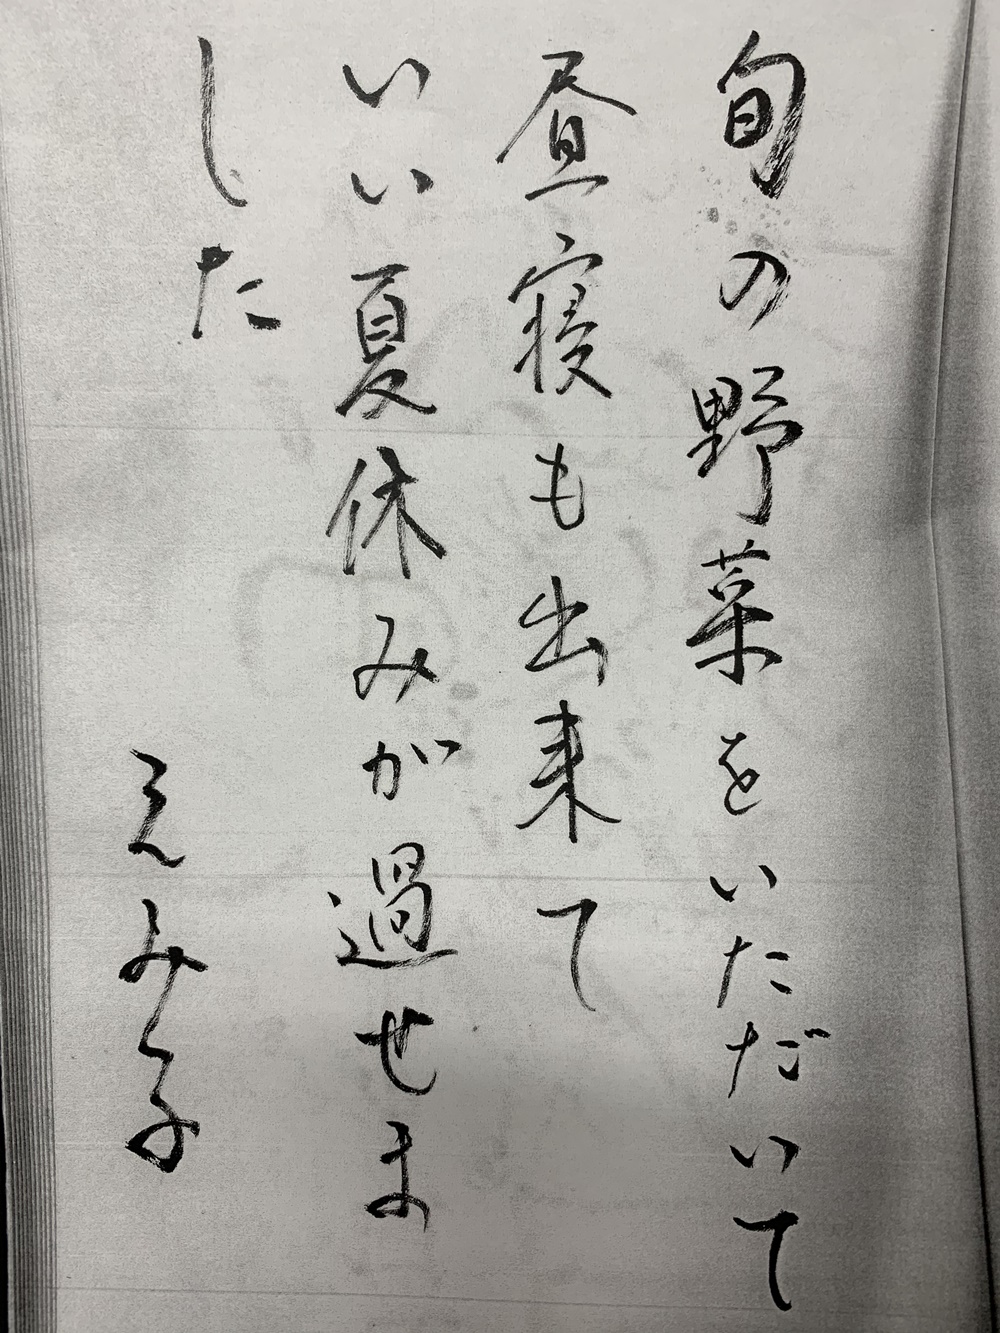 旬の野菜をいただいて
昼寝も出来て
いい夏休みが過せま
した
えみ子